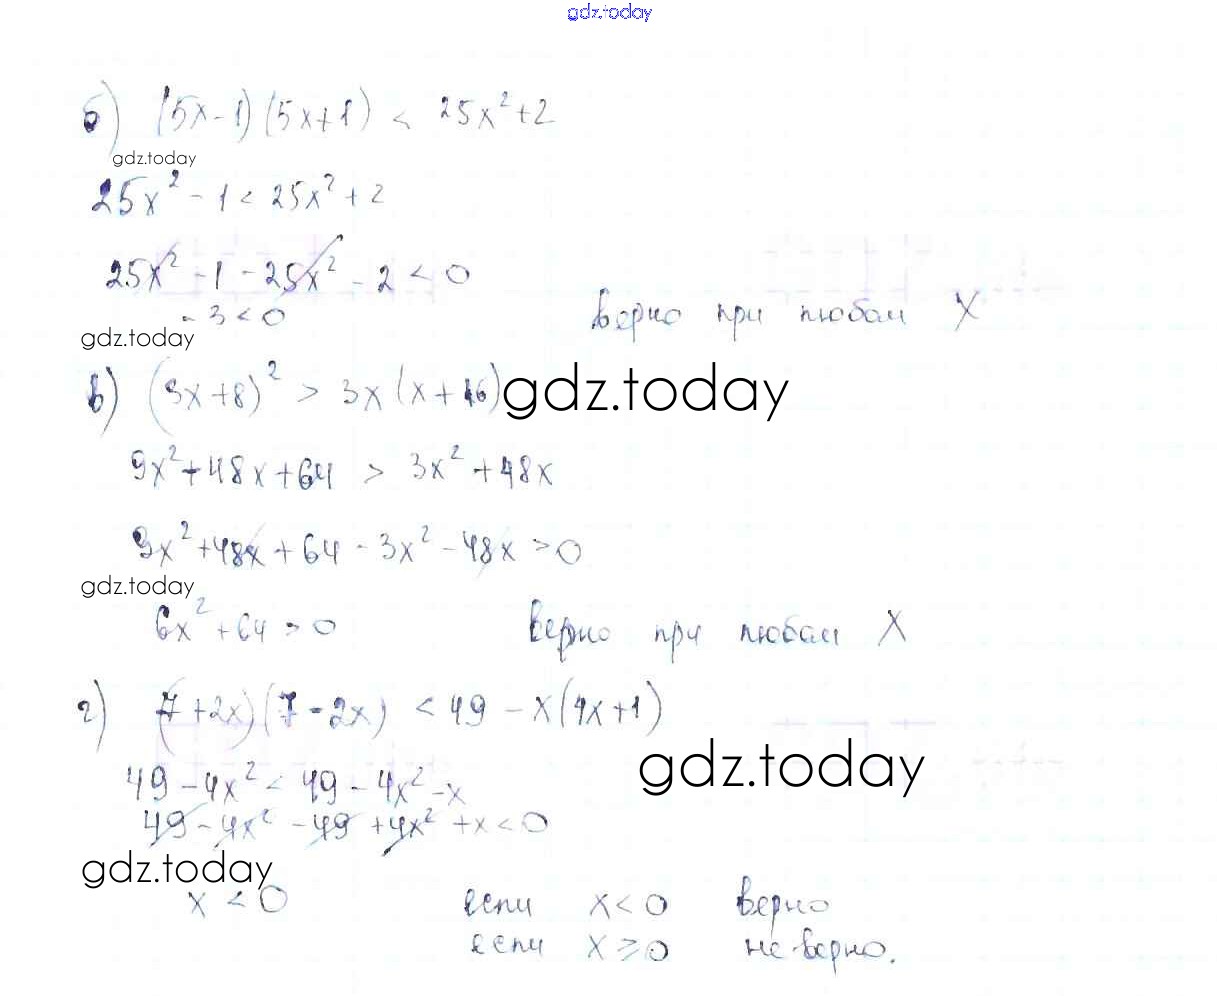 gdz.today
б) (5x-1)(5x+1) < 25x²+2
gdz.today
25x² - 1 < 25x² + 2
25x² - 1 - 25x² - 2 < 0
- 3 < 0
верно при любом X
gdz.today
в) (3x+8)² > 3x(x+16)
gdz.today
9x²+48x+64 > 3x²+48x
9x²+48x+64-3x²-48x>0
gdz.today
6x²+64>0 верно при любом X
г) (7+2x)(7-2x) < 49 - x(4x+1)
gdz.today
49-4x² < 49-4x²-x
49-4x²-49+4x²+x<0
gdz.today
x < 0 если x<0 верно
если x≥0 не верно.